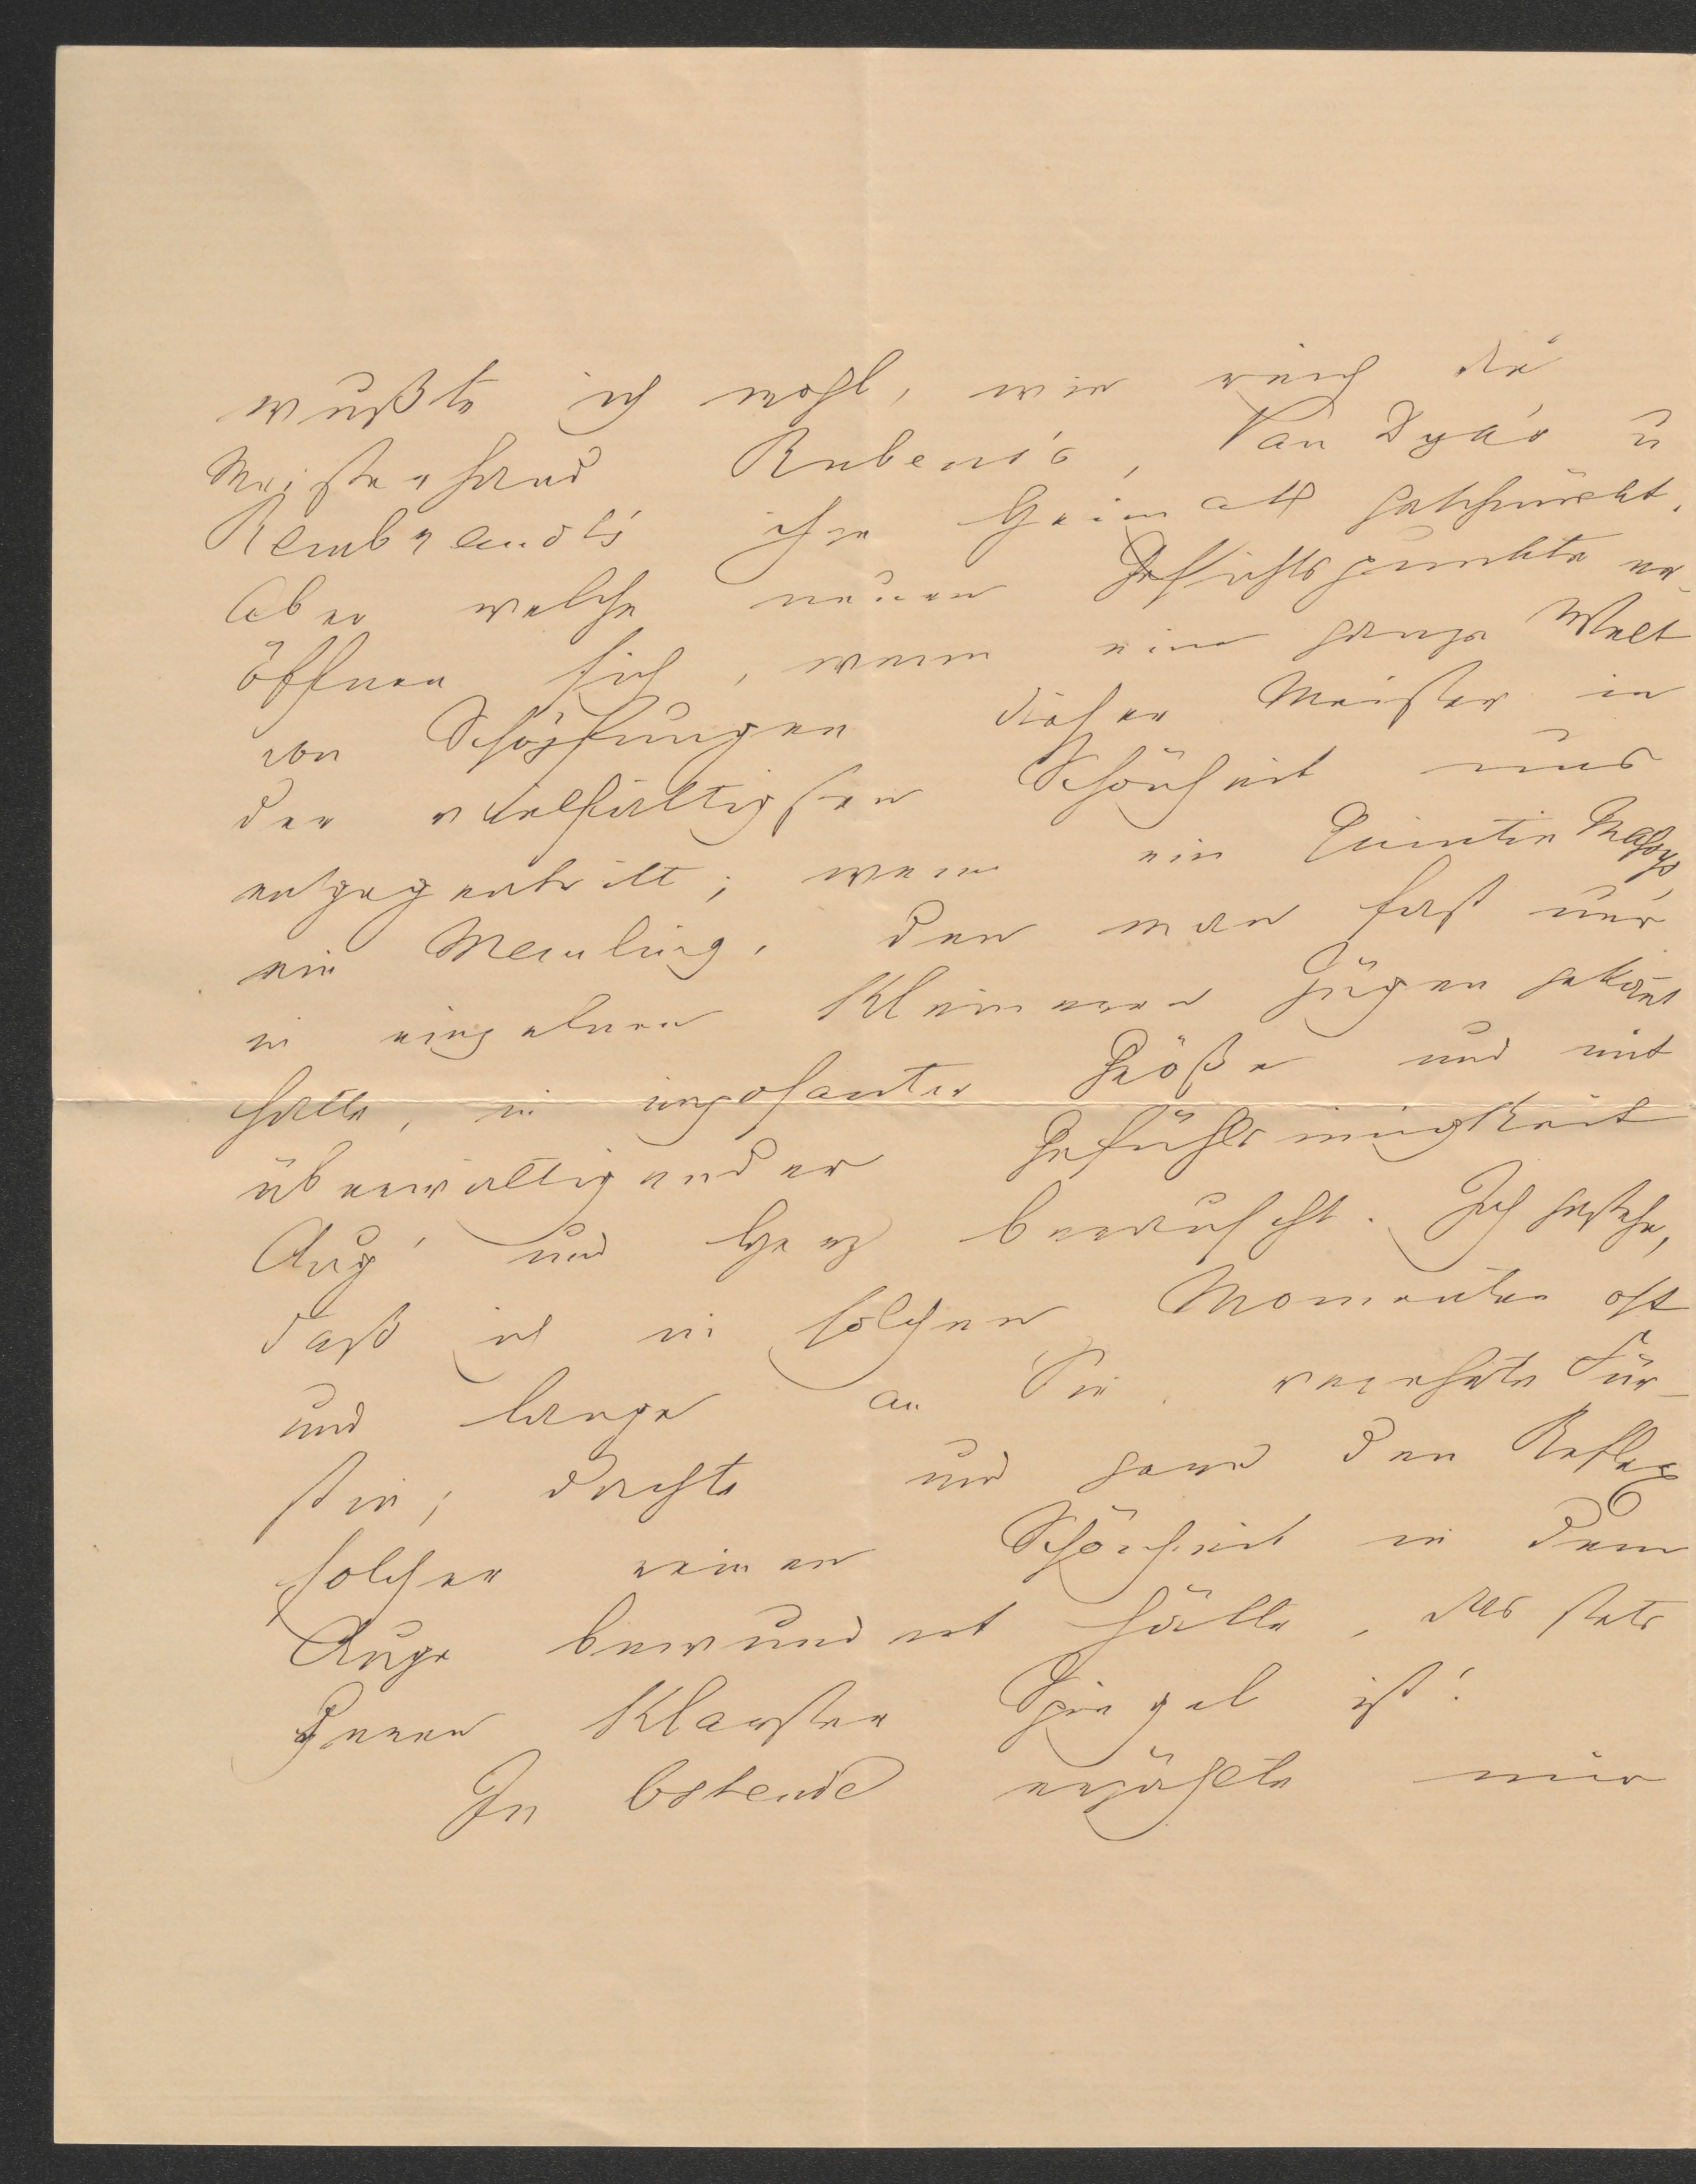 wußte ich wohl, wie reich die
Meisterhand Rubens's, Van Dyk's u
Rembrandt's ihre Heimath geschmückt.
Aber welche neuen Gesichtspunkte er-
öffnen sich, wenn eine ganze Welt
von Schöpfungen dieser Meister in
der vielfältigsten Schönheit uns
entgegentritt; wenn ein Quintin Massys,
ein Memling, den man fast nur
in einzelnen kleineren Zügen gekannt
hatte, in imposanter Größe und mit
überwältigender Gefühlsinnigkeit
Aug' und Herz berauscht. Ich gestehe,
daß ich in solchen Momenten oft
und lange an Sie, verehrte Für-
stin, dachte und gern den Reflex
solcher reinen Schönheit in dem
Auge bewundert hätte, das stets
deren klarster Spiegel ist!
In Ostende erzählte mir